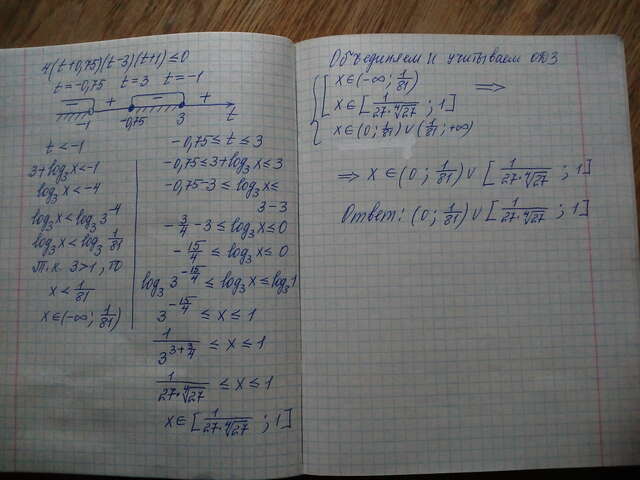 4(t+0,75)(t-3)(t+1) ≤ 0
t=-0,75 t=3 t=-1
− + − +
-1 -0,75 3 t
t < -1
3+log₃x < -1
log₃x < -4
log₃x < log₃3⁻⁴
log₃x < log₃ 1/81
т.к. 3>1, то
x < 1/81
x∈(-∞; 1/81)
-0,75 ≤ t ≤ 3
-0,75 ≤ 3+log₃x ≤ 3
-0,75-3 ≤ log₃x ≤
3-3
-3/4 - 3 ≤ log₃x ≤ 0
-15/4 ≤ log₃x ≤ 0
log₃3^(-15/4) ≤ log₃x ≤ log₃1
3^(-15/4) ≤ x ≤ 1
1/3^(3+3/4) ≤ x ≤ 1
1/(27·⁴√27) ≤ x ≤ 1
x∈[1/(27·⁴√27) ; 1]
Объединяем и учитываем ОДЗ
x∈(-∞; 1/81) ⟹
x∈[1/(27·⁴√27) ; 1]
x∈(0; 1/81)∪(1/81; +∞)
⟹ x∈(0; 1/81)∪[1/(27·⁴√27) ; 1]
Ответ: (0; 1/81)∪[1/(27·⁴√27) ; 1]